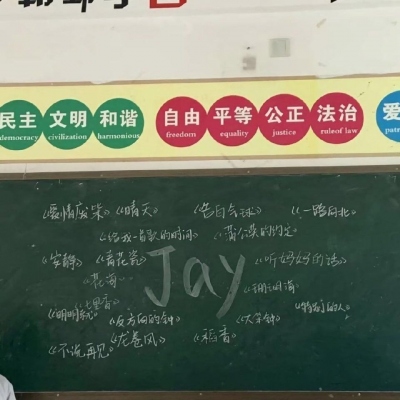 民主 文明 和谐 自由 平等 公正 法治 爱
democracy civilization harmonious freedom equality justice rule of law patr
《爱情废柴》 《晴天》 《告白气球》 《一路向北》
《给我一首歌的时间》 《蒲公英的约定》
《安静》 《青花瓷》 《听妈妈的话》
《花海》 Jay 《珊瑚海》
《七里香》
《明明就》 《反方向的钟》 《大笨钟》 《特别的人》
《不说再见》 《龙卷风》 《稻香》